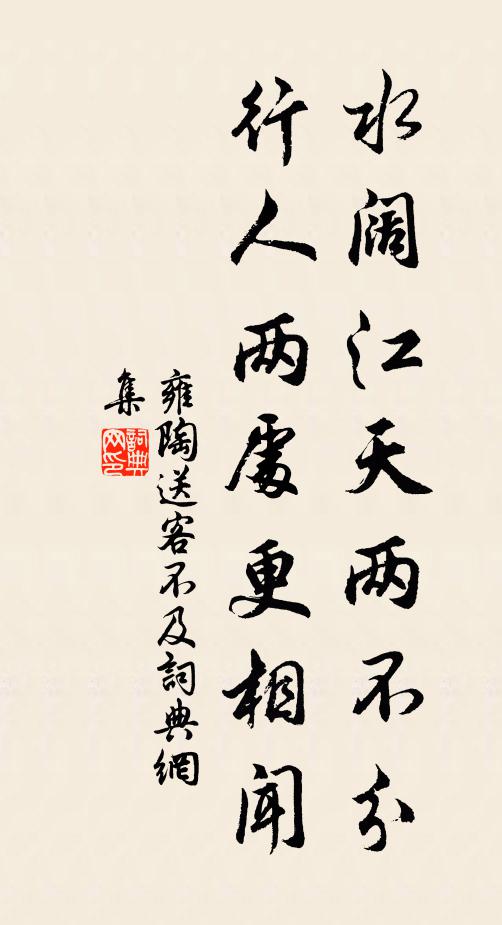 水阔江天两不分
行人两處更相聞
雍陶送客不及詞典網
集
詞典
网印